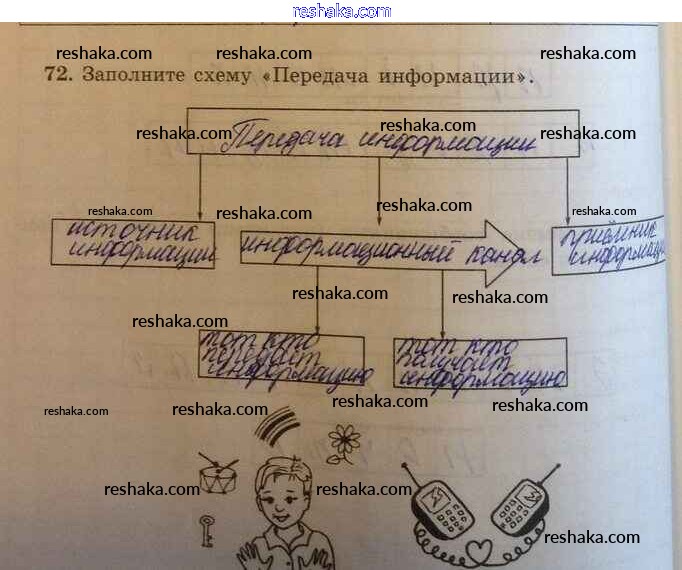 reshaka.com
reshaka.com reshaka.com reshaka.com
72. Заполните схему «Передача информации».
reshaka.com reshaka.com reshaka.com
Передача информации
reshaka.com reshaka.com reshaka.com reshaka.com
источник
информации
информационный канал
приёмник
информации
reshaka.com reshaka.com
reshaka.com
тот кто
передает
информацию
тот кто
получает
информацию
reshaka.com reshaka.com reshaka.com reshaka.com
reshaka.com reshaka.com reshaka.com
reshaka.com
reshaka.com